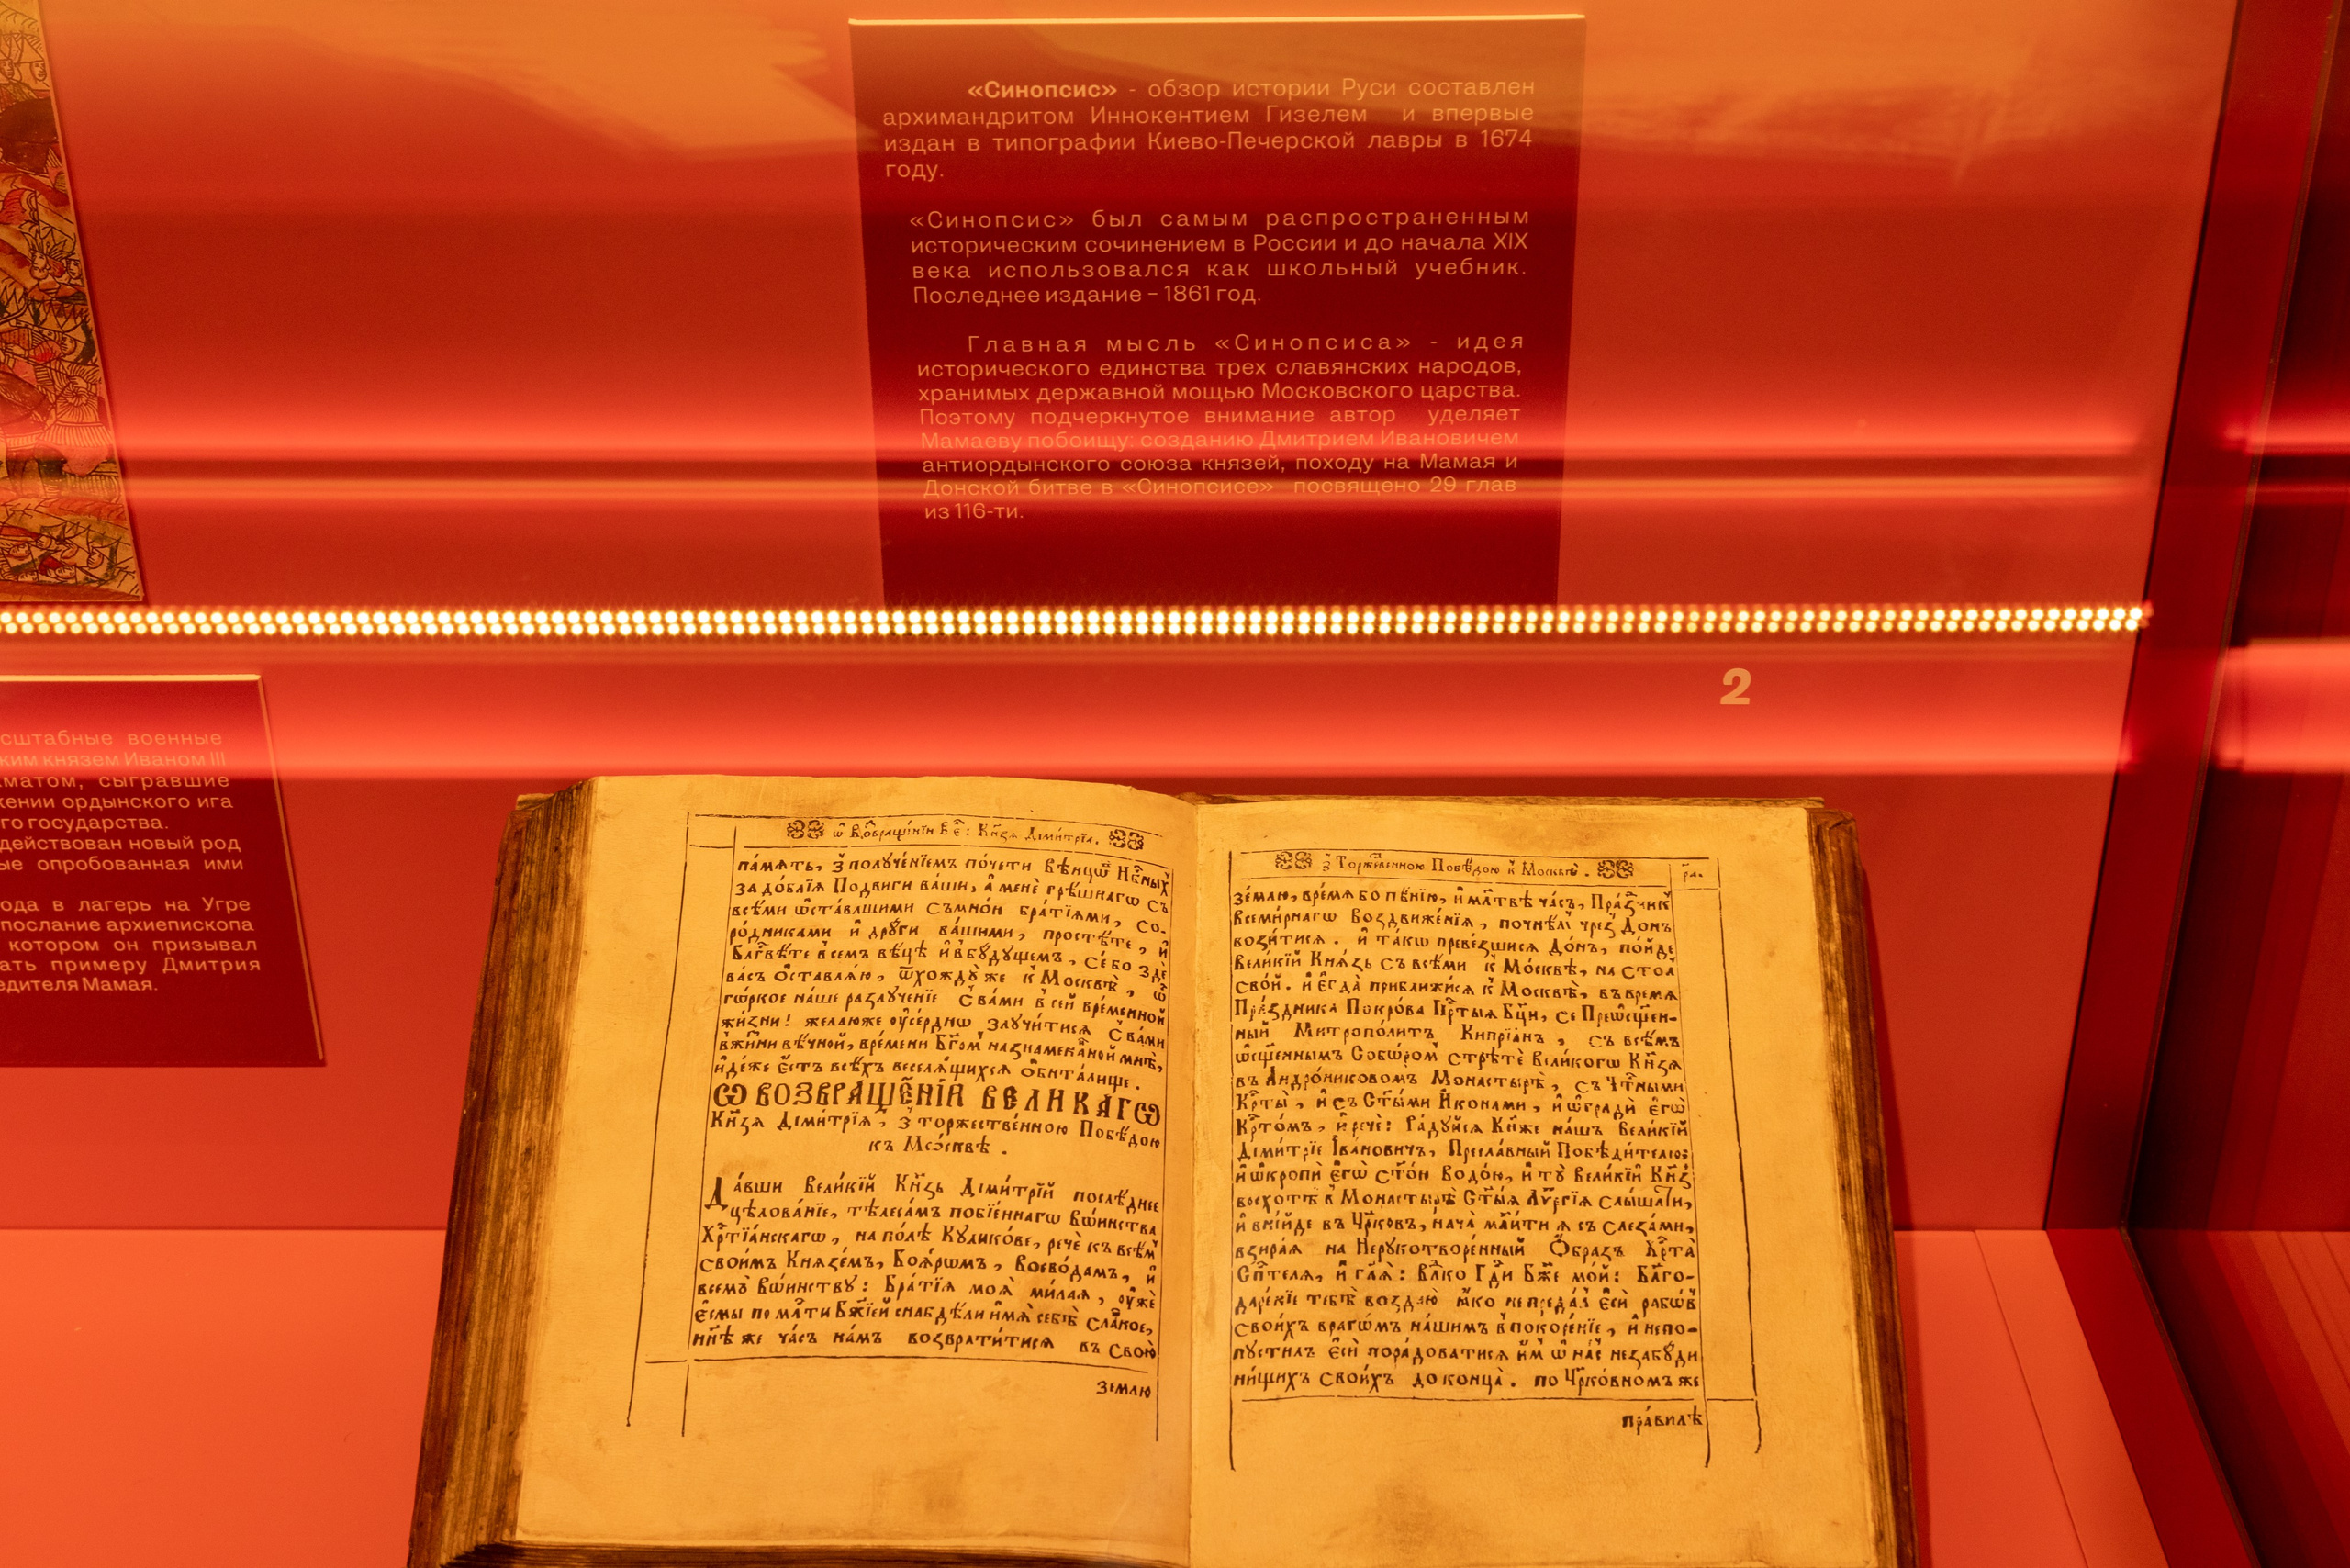 «Синопсис» - обзор истории Руси составлен
архимандритом Иннокентием Гизелем и впервые
издан в типографии Киево-Печерской лавры в 1674
году.
«Синопсис» был самым распространенным
историческим сочинением в России и до начала XIX
века использовался как школьный учебник.
Последнее издание – 1861 год.
Главная мысль «Синопсиса» - идея
исторического единства трех славянских народов,
хранимых державной мощью Московского царства.
Поэтому подчеркнутое внимание автор уделяет
Мамаеву побоищу: созданию Дмитрием Ивановичем
антиордынского союза князей, походу на Мамая и
Донской битве в «Синопсисе» посвящено 29 глав
из 116-ти.
2
сштабные военные
ким князем Иваном III
матом, сыгравшие
жении ордынского ига
го государства.
действован новый род
ые опробованная ими
ода в лагерь на Угре
послание архиепископа
котором он призывал
ать примеру Дмитрия
едителя Мамая.
Кн҃зѧ Димитрїа.
па́мѧть, з̾ полꙋче́нїемъ по́чети вѣнцѡ́в
за до́блїѧ Подвиги ва́ши, а҆ менѐ грѣ́шнагѡ съ
всѣ́ми ѡ҆ста́вшими съмно́ю бра́тїѧми, со-
ро́дниками и҆ дрꙋ́ги ва́шими, прости́те, и҆
Блгⷭ҇ве́те всемъ вѣ́цѣ и҆ в бꙋ́дꙋщемъ, се́ бо здѐ
ва́съ ѡ҆ставлѧ́ю, ѿхождꙋ́ же к̾ Москвѣ̀, ѽ
го́ркое на́ше разлꙋче́нїе с̾ ва́ми в̾ се́й вре́менной
жи́зни! жела́юже ᲂу҆се́рднѡ злꙋчи́тисѧ с̾ ва́ми
в̾ жи́зни вѣ́чной, вре́мени Бг҃ом назнамена́нной мнѣ̀,
и҆дѣ́же є҆́сть всѣ́хъ веселѧ́щихсѧ ѻ҆бита́лище.
Ѽ ВОЗВРАЩЕ́НЇИ ВЕЛИКАГѠ
Кн҃зѧ Дими́трїѧ, з̾ торжестве́нною Побѣ́дою
къ Мо́сквѣ.
Да́вши Вели́кїй Кн҃зь Дими́трїй послѣ́днее
цѣлова́нїе, тѣлеса́мъ побїе́ннагѡ во́инства
Хрⷭ҇тїа́нскагѡ, на по́лѣ Кꙋли́ковѣ, речѐ къ всѣ́м
свои́мъ Кнѧзе́мъ, Боѧ́рѡмъ, Воево́дамъ, и҆
всемꙋ̀ во́инствꙋ: Бра́тїѧ моѧ̀ ми́лаѧ, ᲂу҆жѐ
є҆смы̀ по мл҃ти Бж҃їей снабдѣ́ли и҆́мѧ себѣ̀ сла́вное,
нн҃ѣ же ча́съ на́мъ возврати́тисѧ въ Свою̀
землю
з̾ Торже́ственною Побѣ́дою к̾ Москвѣ̀.
ра.
зе́млю, вре́мѧ бо пѣ́нїю, и҆ мл҃твѣ ча́съ, Пра́здник
Всемі́рнагѡ Воздвиже́нїѧ, почне́м чрез До́нъ
вози́тисѧ. и҆ та́кѡ преве́зшисѧ До́нъ, по́йде
Вели́кїй Кнѧ́зь съ всѣ́ми к̾ Мо́сквѣ, на сто́л
сво́й. и҆ є҆гда̀ прибли́жисѧ к̾ Москвѣ̀, въ вре́мѧ
Пра́здника Покро́ва Прⷭ҇тыѧ Бц҃и, се Прео́сщен-
ный Митрополи́тъ Кипрїа́нъ, съ всѣ́мъ
ѡ҆сщ҃е́ннымъ Собо́ромъ стрѣ́те Вели́когѡ Кн҃зѧ
въ Андро́никовомъ Монастырѣ̀, съ Чⷭ҇тными
Крⷭ҇ты̀, и҆ съ Ст҃ы́ми И҆ко́нами, и҆ ѡ҆градѝ є҆го̀
Крⷭ҇то́мъ, и҆ речѐ: Ра́дꙋйсѧ Кнѧ́же на́шъ Вели́кїй
Дими́трїе І҆ва́новичъ, Пресла́вный Побѣди́телю:
и҆ ѡ҆кропѝ є҆го̀ ст҃о́ю водо́ю, и҆ тꙋ̀ Вели́кїй Кн҃зь
восхотѣ̀ в̾ Монастырѣ̀ Ст҃ы́ѧ Лѷтꙋргїѧ слы́шати,
и҆ вни́йде въ Цр҃ковъ, нача̀ моли́тисѧ съ слеза́ми,
взира́ѧ на Нерꙋкотворе́нный Ѻ҆́бразъ Хрⷭ҇та̀
Сп҃си́телѧ, и҆ гл҃ѧ̀: Влⷣко Гдⷭ҇и Бж҃е мо́й: Благо-
даре́нїе тебѣ̀ воздаю̀ ꙗ҆́ко не пре́дал є҆сѝ рабѡ́въ
свои́хъ врагѡ́мъ на́шимъ в̾ покоре́нїе, и҆ непо-
пꙋсти́лъ є҆сѝ пора́доватисѧ и҆́м ѡ҆ на́с не забꙋ́ди
ни́щихъ свои́хъ до конца̀. по Цр҃ко́вномꙋ же
пра́вилꙋ